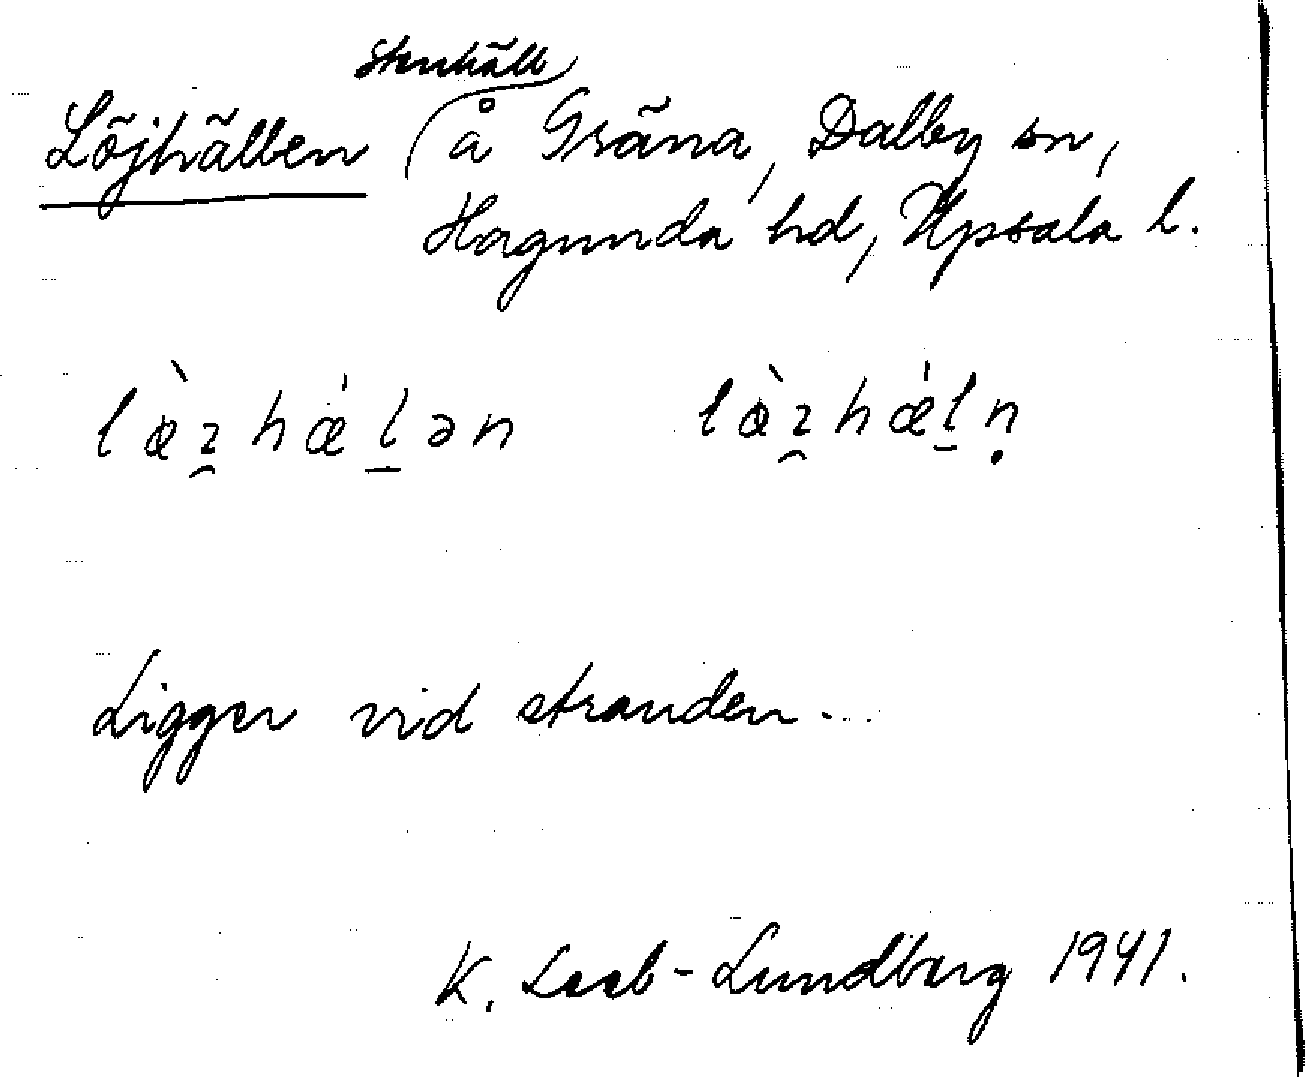 Stenhäll
Löjhällen å Gräna, Dalby sn,
Hagunda hd, Upsala l.
Ligger vid stranden.
K. Leeb-Lundberg 1941.